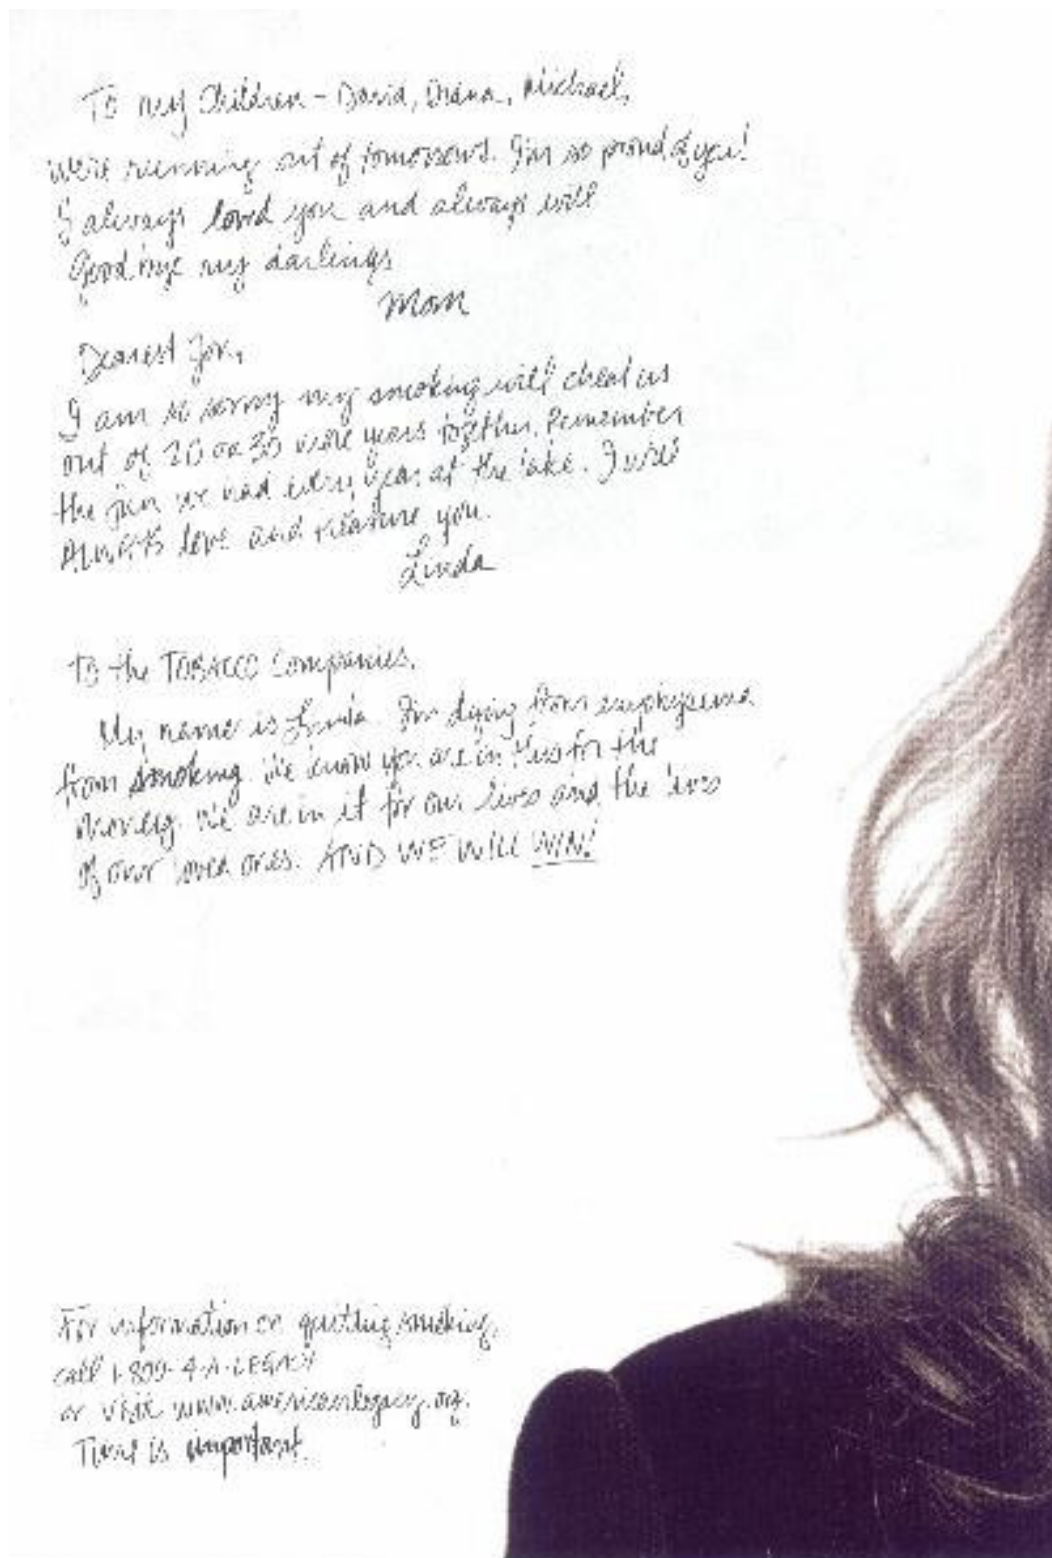 To my Children - David, Diana, Michael,
We're running out of tomorrows. I'm so proud of you!
I always loved you and always will
Goodbye my darlings
Mom
Dearest Jon,
I am so sorry my smoking will cheat us
out of 20 or 30 more years together. Remember
the fun we had every year at the lake. I will
ALWAYS love and treasure you.
Linda
To the TOBACCO Companies.
My name is Linda. I'm dying from emphysema
from smoking. We know you are in this for the
money. We are in it for our lives and the lives
of our loved ones. AND WE WILL WIN!
For information on quitting smoking,
call 1-800-4-A-LEGACY
or visit www.americanlegacy.org.
Time is important.